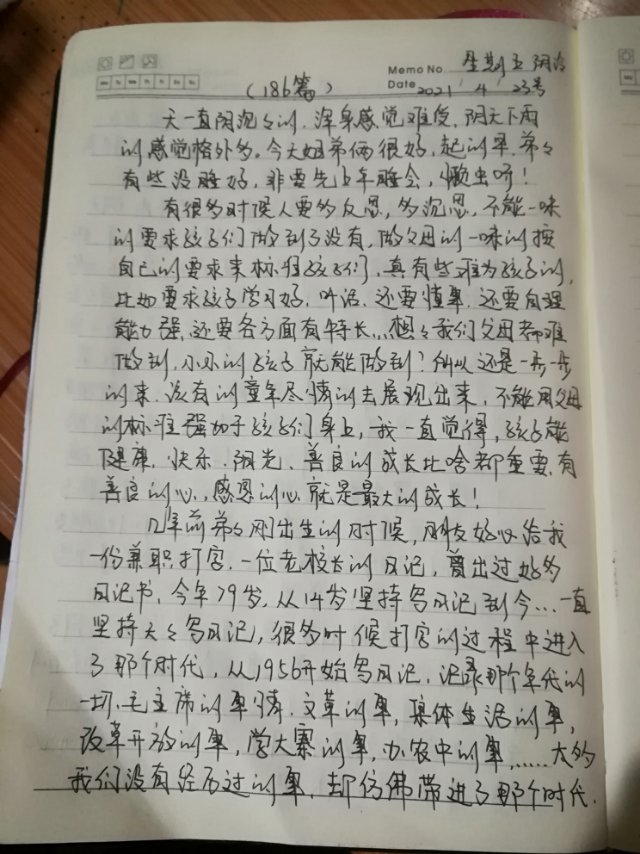 Memo No. 星期五 阴冷
(186篇) Date 2021 / 4 / 23号
天一直阴沉々的, 浑身感觉难受, 阴天下雨
的感觉格外多。今天姐弟俩很好, 起的早, 弟々
有些没睡好, 非要先上车睡会, 懒虫呀!
有很多时候人要多反思, 多沉思, 不能一味
的要求孩子们做到了没有, 做父母的一味的按
自己的要求来标准孩子们, 真有些难为孩子的,
比如要求孩子学习好, 听话, 还要懂事, 还要自理
能力强, 还要各方面有特长... 想々我们父母都难
做到, 小小的孩子就能做到? 所以还是一步一步
的来, 该有的童年尽情的去展现出来, 不能用父母
的标准强加于孩子们身上, 我一直觉得, 孩子能
健康、快乐、阳光、善良的成长比啥都重要, 有
善良的心, 感恩的心就是最大的成长!
几年前弟々刚出生的时候, 朋友好心给我
一份兼职打字, 一位老校长的日记, 曾出过好多
日记书, 今年79岁, 从14岁坚持写日记到今... 一直
坚持天々写日记, 很多时候打字的过程中进入
了那个时代, 从1956开始写日记, 记录那个年代的
一切, 毛主席的事情, 文革的事, 集体生活的事,
改革开放的事, 学大寨的事, 办农中的事, ...... 大多
我们没有经历过的事, 却仿佛带进了那个时代.